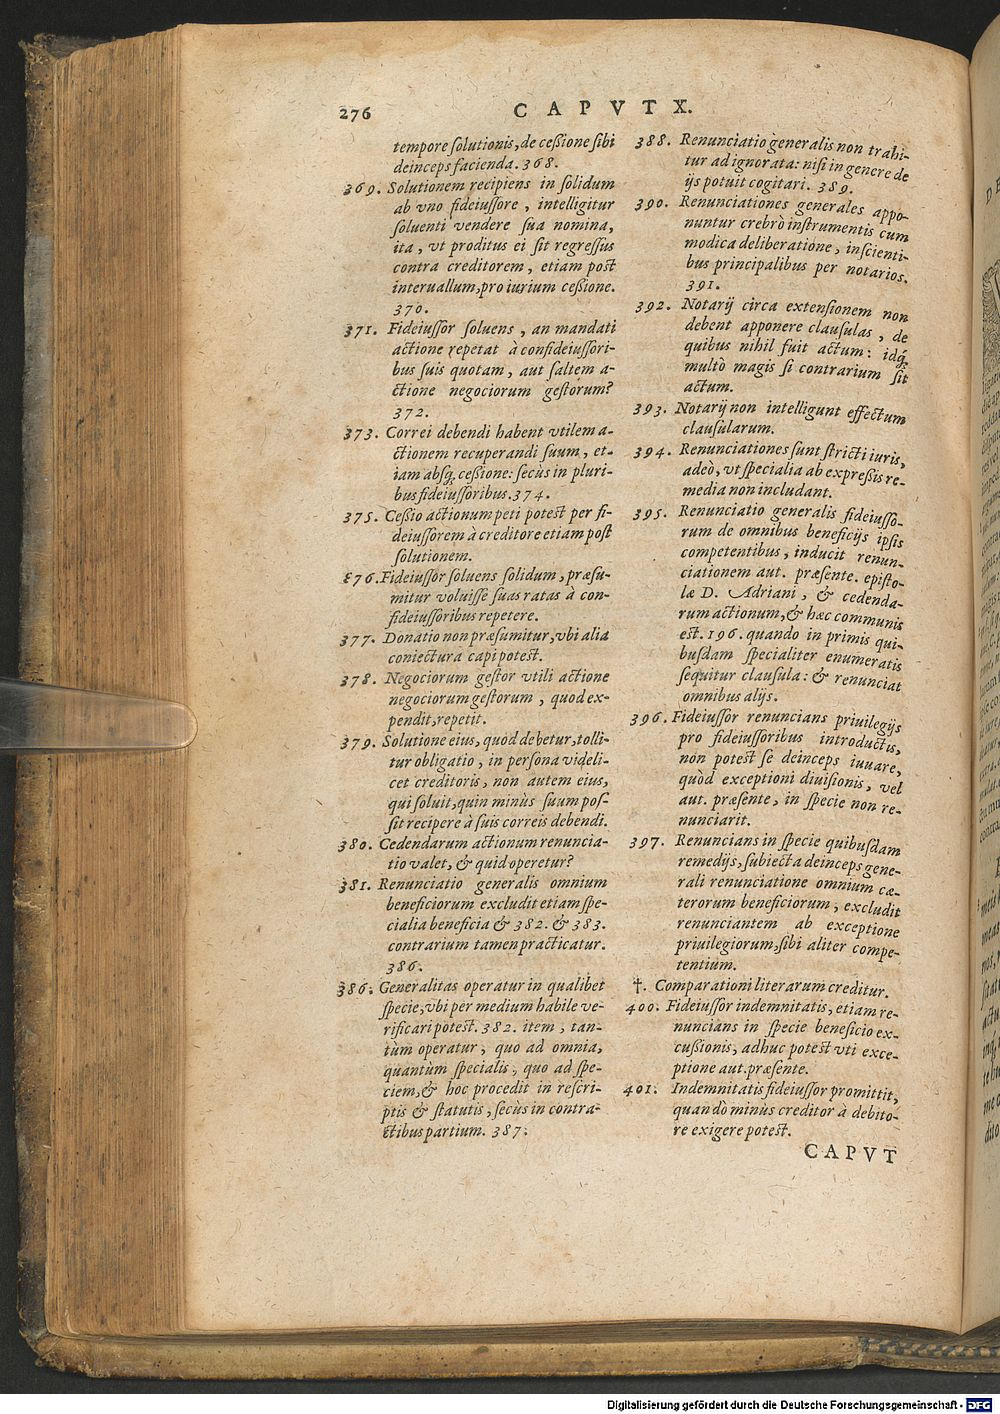 276
CAPVT X.
tempore solutionis, de cessione sibi
deinceps facienda. 368.
369. Solutionem recipiens in solidum
ab vno fideiussore, intelligitur
soluenti vendere sua nomina,
ita, vt proditus ei sit regressus
contra creditorem, etiam post
interuallum, pro iurium cessione.
370.
371. Fideiussor soluens, an mandati
actione repetat à confideiussori-
bus suis quotam, aut saltem a-
ctione negociorum gestorum?
372.
373. Correi debendi habent vtilem a-
ctionem recuperandi suum, et-
iam absq; cessione: secùs in pluri-
bus fideiussoribus. 374.
375. Cessio actionum peti potest per fi-
deiussorem à creditore etiam post
solutionem.
376. Fideiussor soluens solidum, præsu-
mitur voluisse suas ratas à con-
fideiussoribus repetere.
377. Donatio non præsumitur, vbi alia
coniectura capi potest.
378. Negociorum gestor vtili actione
negociorum gestorum, quod ex-
pendit, repetit.
379. Solutione eius, quod debetur, tolli-
tur obligatio, in persona videli-
cet creditoris, non autem eius,
qui soluit, quin minùs suum pos-
sit recipere à suis correis debendi.
380. Cedendarum actionum renuncia-
tio valet, & quid operetur?
381. Renunciatio generalis omnium
beneficiorum excludit etiam spe-
cialia beneficia & 382. & 383.
contrarium tamen practicatur.
386.
386. Generalitas operatur in qualibet
specie, vbi per medium habile ve-
rificari potest. 382. item, tan-
tùm operatur, quo ad omnia,
quantùm specialis, quo ad spe-
ciem, & hoc procedit in rescri-
ptis & statutis, secùs in contra-
ctibus partium. 387.
388. Renunciatio generalis non trahi-
tur ad ignorata: nisi in genere de
ijs potuit cogitari. 389.
390. Renunciationes generales appo-
nuntur crebrò instrumentis cum
modica deliberatione, inscienti-
bus principalibus per notarios.
391.
392. Notarij circa extensionem non
debent apponere clausulas, de
quibus nihil fuit actum: idq;
multò magis si contrarium sit
actum.
393. Notarij non intelligunt effectum
clausularum.
394. Renunciationes sunt stricti iuris,
adeò, vt specialia ab expressis re-
media non includant.
395. Renunciatio generalis fideiusso-
rum de omnibus beneficijs ipsis
competentibus, inducit renun-
ciationem aut. præsente. episto-
læ D. Adriani, & cedenda-
rum actionum, & hæc communis
est. 196. quando in primis qui-
busdam specialiter enumeratis
sequitur clausula: & renunciat
omnibus alijs.
396. Fideiussor renuncians priuilegijs
pro fideiussoribus introductis,
non potest se deinceps iuuare,
quòd exceptioni diuisionis, vel
aut. præsente, in specie non re-
nunciarit.
397. Renuncians in specie quibusdam
remedijs, subiecta deinceps gene-
rali renunciatione omnium cæ-
terorum beneficiorum, excludit
renunciantem ab exceptione
priuilegiorum, sibi aliter compe-
tentium.
†. Comparationi literarum creditur.
400. Fideiussor indemnitatis, etiam re-
nuncians in specie beneficio ex-
cussionis, adhuc potest vti exce-
ptione aut. præsente.
401. Indemnitatis fideiussor promittit,
quandò minùs creditor à debito-
re exigere potest.
CAPVT
Digitalisierung gefördert durch die Deutsche Forschungsgemeinschaft - DFG